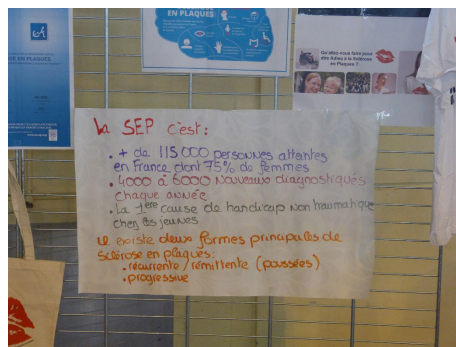 EN PLAQUES
EN PLAQUES
Qu'allez-vous faire pour
dire Adieu à la Sclérose
en Plaques ?
La SEP c'est :
. + de 115 000 personnes atteintes
en France dont 75% de femmes
. 4000 à 6000 nouveaux diagnostiqués
chaque année
. La 1ère cause de handicap non traumatique
chez les jeunes
Il existe deux formes principales de
sclérose en plaques :
. récurrente / rémittente (poussées)
. progressive